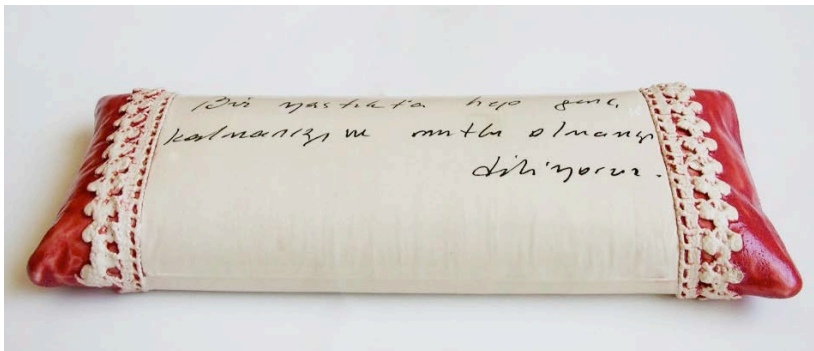 Bir yastıkta hep genç
kalmanızı ve mutlu olmanızı
diliyoruz.